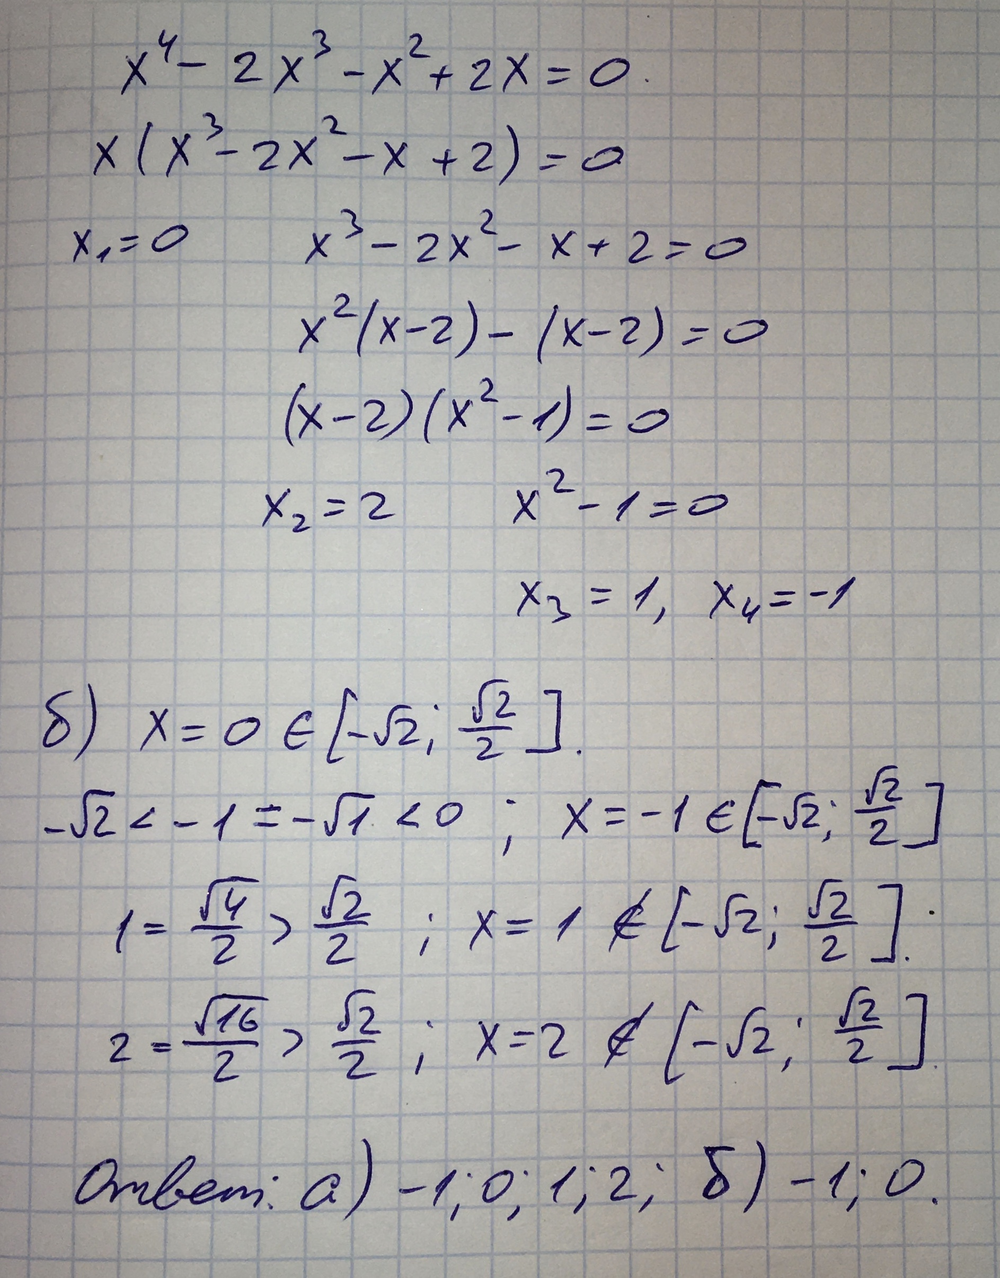 x⁴ - 2x³ - x² + 2x = 0.
x(x³ - 2x² - x + 2) = 0
x₁ = 0 x³ - 2x² - x + 2 = 0
x²(x-2) - (x-2) = 0
(x-2)(x² - 1) = 0
x₂ = 2 x² - 1 = 0
x₃ = 1, x₄ = -1
б) x = 0 ∈ [-√2; √2/2].
-√2 < -1 = -√1 < 0 ; x = -1 ∈ [-√2; √2/2]
1 = √4/2 > √2/2 ; x = 1 ∉ [-√2; √2/2].
2 = √16/2 > √2/2 ; x = 2 ∉ [-√2; √2/2].
Ответ: а) -1; 0; 1; 2; б) -1; 0.